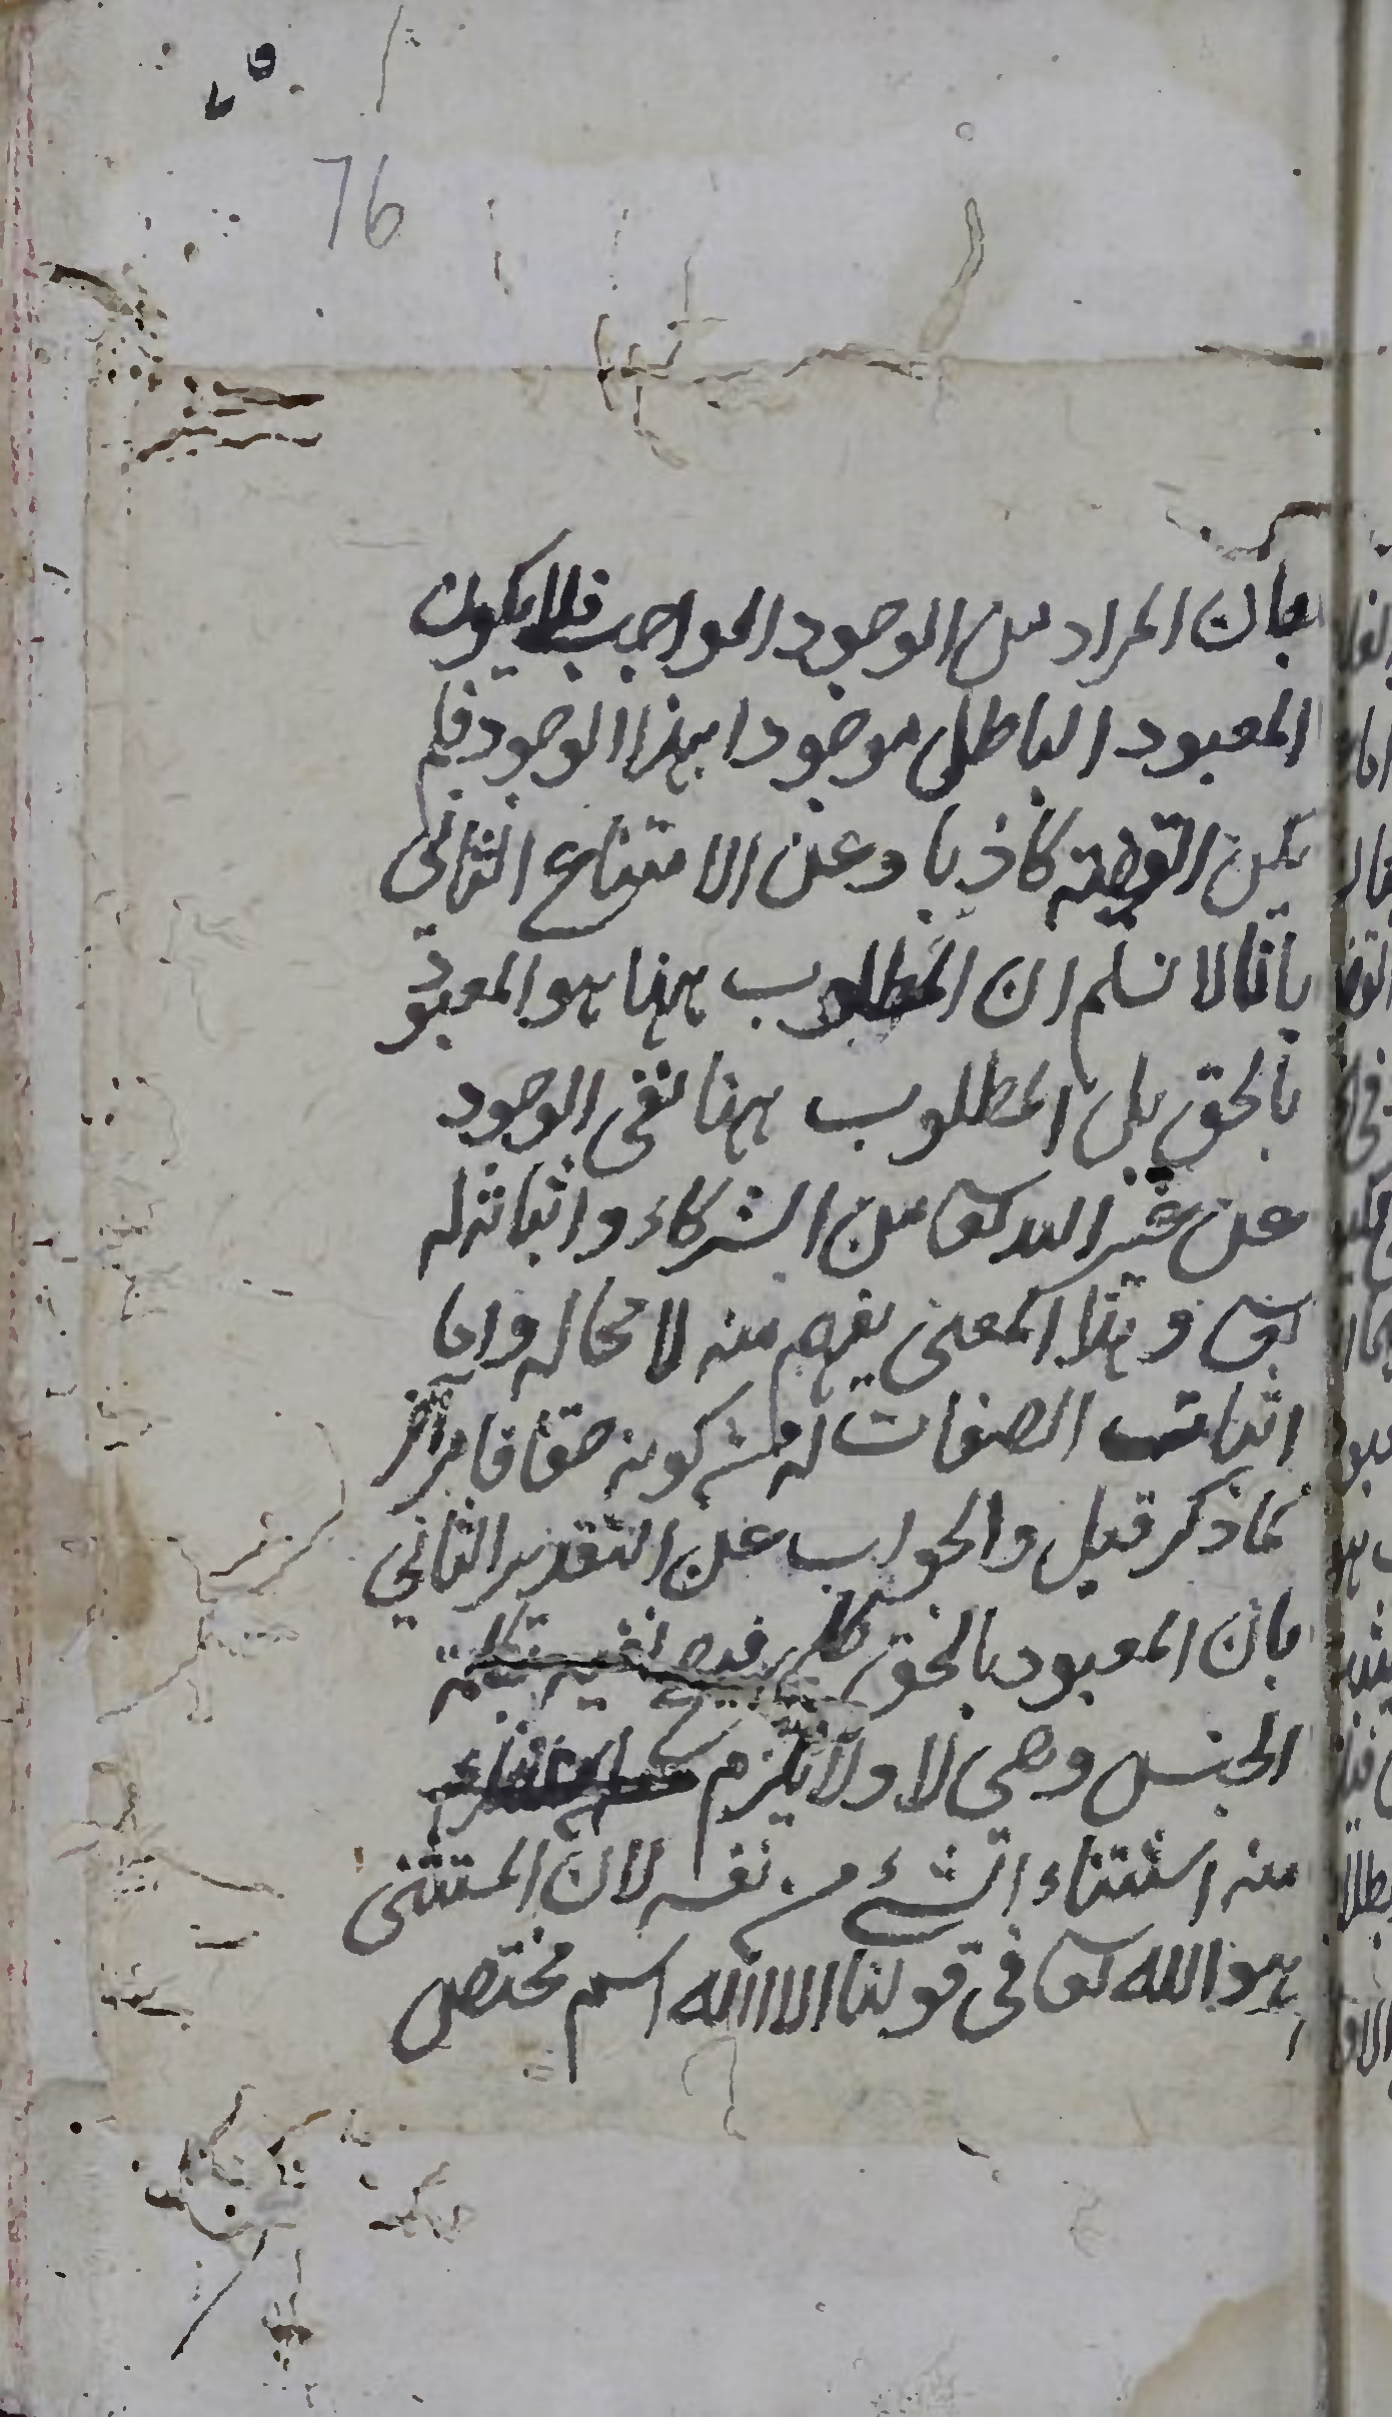 76
بان المراد من الوجود الواجب فلا يكون
المعبود الباطل موجودا بهذا الوجود فلم
يكن القضية كاذبا وعن الامتناع الثاني
بانا لا نسلم ان المطلوب ههنا هو المعبود
بالحق بل المطلوب ههنا نفى الوجود
عن غير الله تعا من الشركاء واثباته له
تعا وهذا المعنى يفهم منه لا محاله واما
اثبات الصفات له من كونه حقا فامر آخر
كما ذكر قبل والجواب عن التقدير الثاني
بان المعبود بالحق كلى
الجنس وهى لا ولا يلزم
منه استثناء الشئ من نفسه لان المستثنى
هو الله تعا فى قولنا الا الله اسم مختص